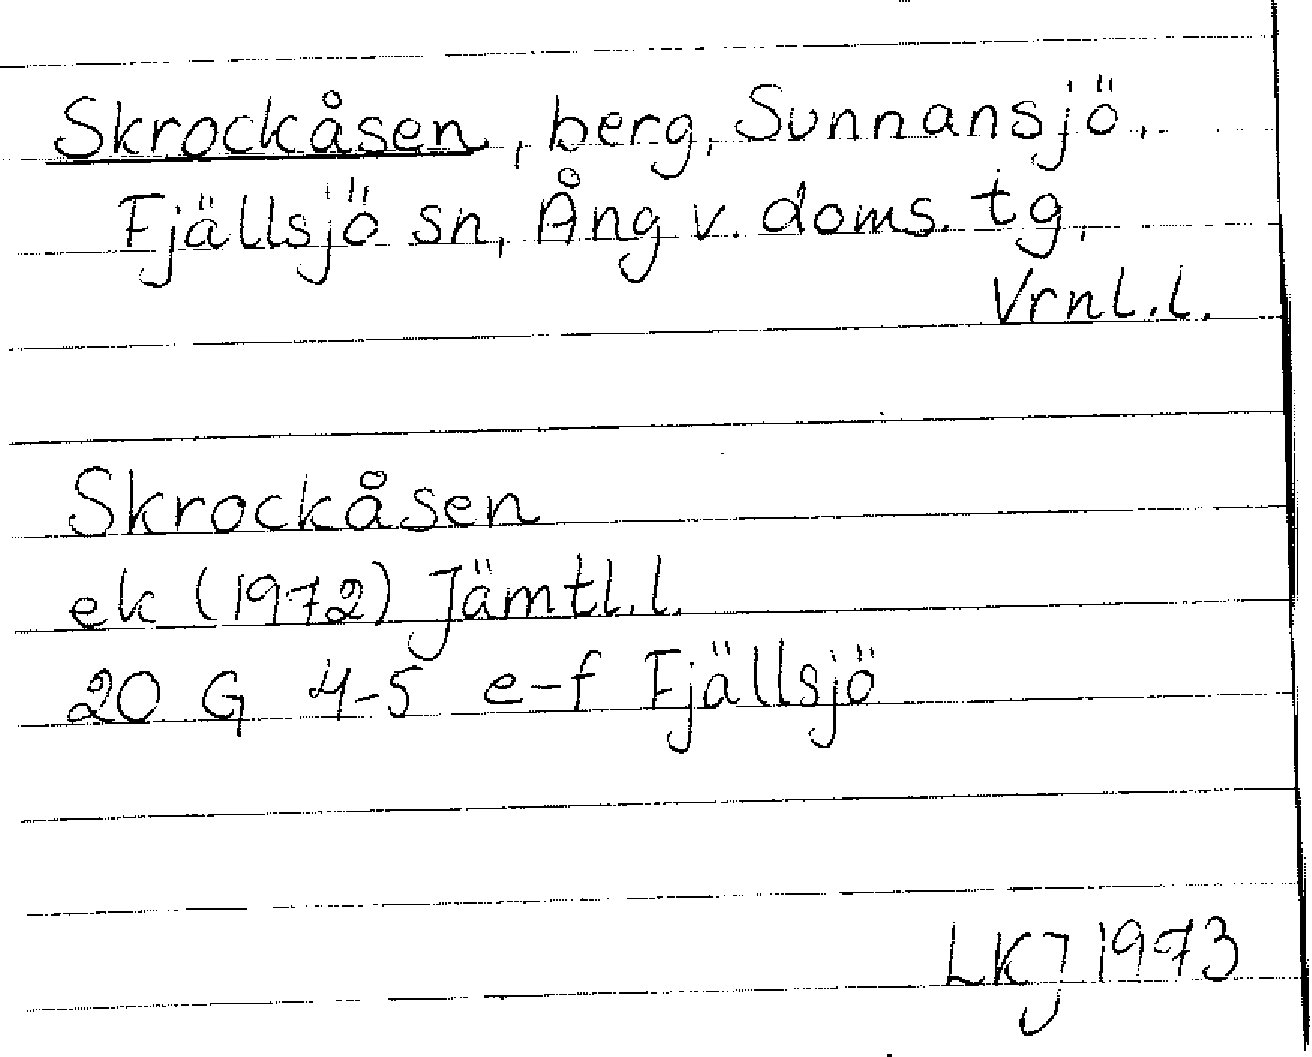 Skrockåsen, berg, Sunnansjö,
Fjällsjö sn, Ång v. doms. tg,
Vrnl.l.
Skrockåsen
ek (1972) Jämtl.l.
20 G 4-5 e-f Fjällsjö
LKJ 1973